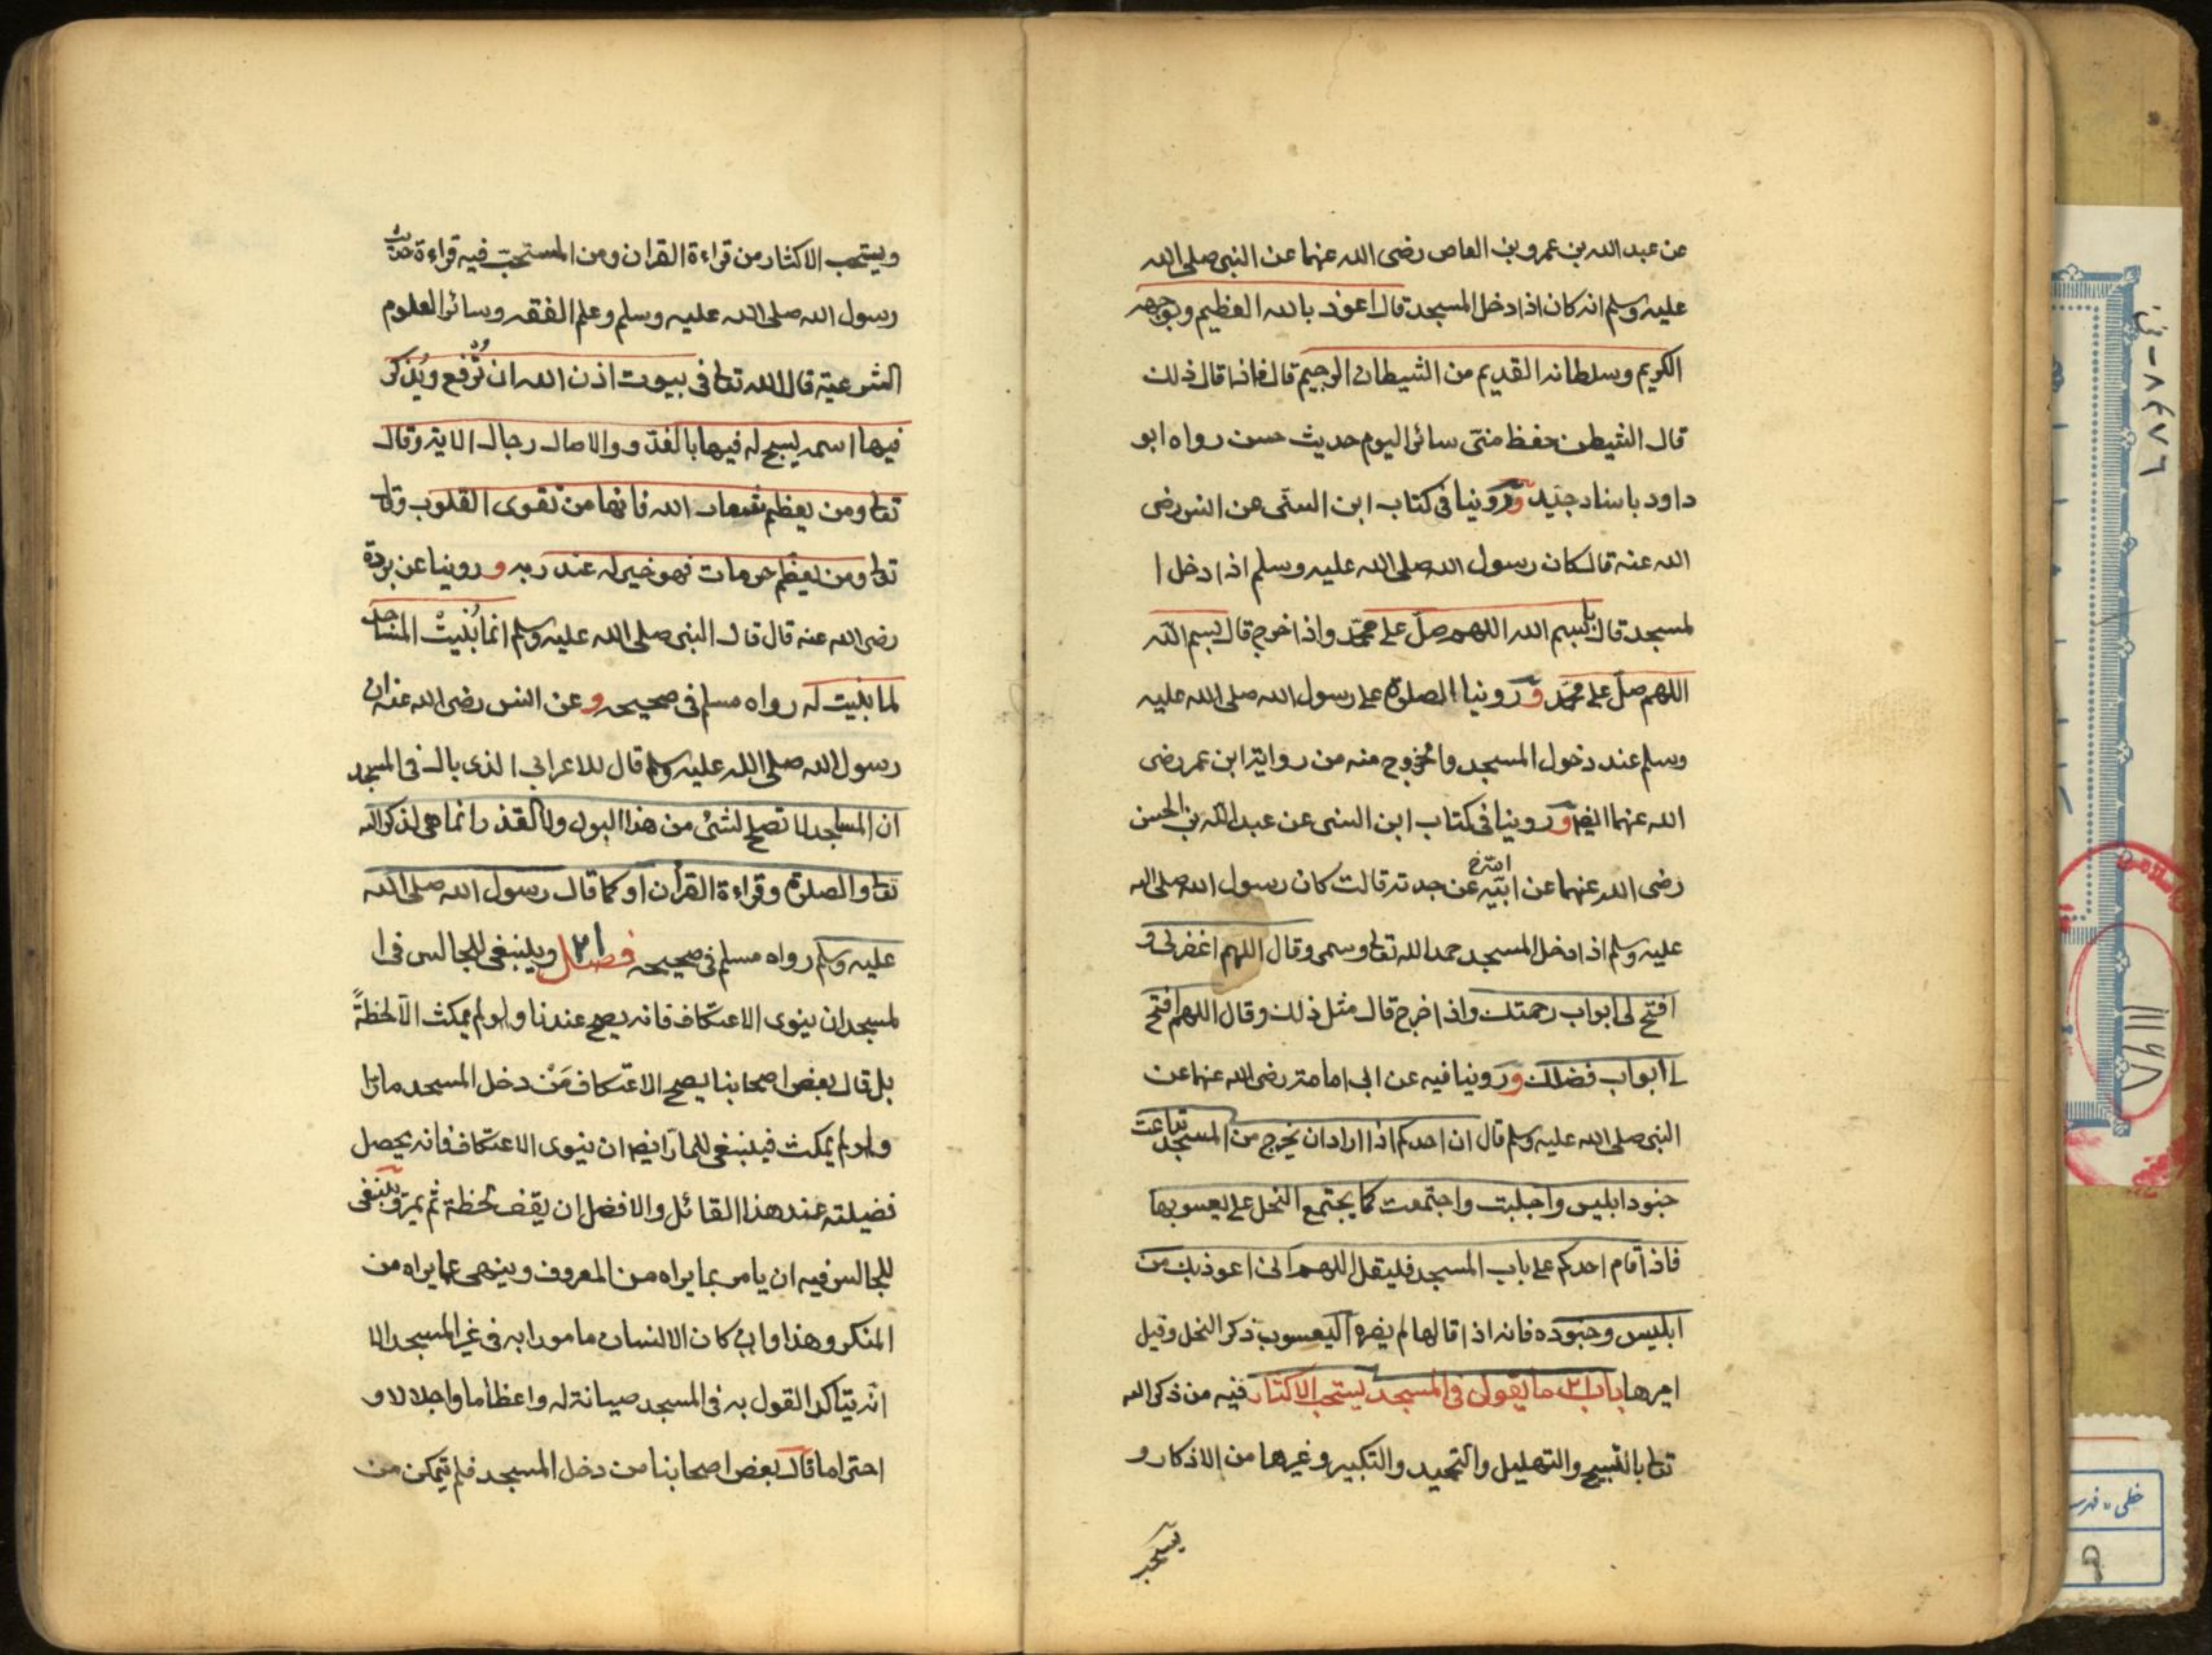 عن عبد الله بن عمرو بن العاص رضى الله عنهما عن النبى صلى الله
عليه وسلم انه كان اذا دخل المسجد قال اعوذ بالله العظيم وبوجهه
الكريم وسلطانه القديم من الشيطان الرجيم قال فاذا قال ذلك
قال الشيطن حفظ منّى سائر اليوم حديث حسن رواه ابو
داود باسناد جيّد وروينا فى كتاب ابن السنّى عن انس رضى
الله عنه قال كان رسول الله صلى الله عليه وسلم اذا دخل ا
لمسجد قال بسم الله اللهم صلّ على محمّد واذا خرج قال بسم الله
اللهم صلّ على محمّد وروينا الصلوة على رسول الله صلى الله عليه
وسلم عند دخول المسجد والخروج منه من رواية ابن عمر رضى
الله عنهما ايضا وروينا فى كتاب ابن السنى عن عبد الله بن الحسن
رضى الله عنهما عن ابيه امّه خ عن جدته قالت كان رسول الله صلى الله
عليه وسلم اذا دخل المسجد حمد الله تعا وسمى وقال اللهم اغفر لى و
افتح لى ابواب رحمتك واذا خرج قال مثل ذلك وقال اللهم افتح
لى ابواب فضلك وروينا فيه عن ابى امامة رضى الله عنهما عن
النبى صلى الله عليه وسلم قال ان احدكم اذا اراد ان يخرج من المسجد تداعت
جنود ابليس واجلبت واجتمعت كما يجتمع النحل على يعسوبها
فاذا قام احدكم على باب المسجد فليقل اللهم انى اعوذ بك من
ابليس وجنوده فانه اذا قالها لم يضره اليعسوب ذكر النحل وقيل
اميرها باب ما يقول فى المسجد يستحب الاكثار فيه من ذكر الله
تعا بالتسبيح والتهليل والتحميد والتكبير وغيرها من الاذكار و
يستحب
ويستحب الاكثار من قراءة القران ومن المستحبّ فيه قراءة حديث
رسول الله صلى الله عليه وسلم وعلم الفقه وسائر العلوم
الشرعية قال الله تعا فى بيوت اذن الله ان تُرفع ويُذكر
فيها اسمه يسبح له فيها بالغدّو والاصال رجال الاية وقال
تعا ومن يعظم شعائر الله فانها من تقوى القلوب وقال
تعا ومن يعظم حرمات فهو خير له عند ربه وروينا عن بردة
رضى الله عنه قال قال النبى صلى الله عليه وسلم انما بُنيتْ المساجد
لما بنيت له رواه مسلم فى صحيحه وعن انس رضى الله عنه ان
رسول الله صلى الله عليه وسلم قال للاعرابى الذى بال فى المسجد
ان المساجد لا تصلح لشئ من هذا البول ولا القذر انما هى لذكر الله
تعا والصلوة وقراءة القرأن او كما قال رسول الله صلى الله
عليه وسلم رواه مسلم فى صحيحه فصل وينبغى للجالس فى ا
لمسجد ان ينوى الاعتكاف فانه يصح عندنا ولو لم يمكث الّا لحظةً
بل قال بعض اصحابنا يصح الاعتكاف مَنْ دخل المسجد مارّا
ولو لم يمكث فينبغى للمارّ ايضا ان ينوى الاعتكاف فانه يحصل
فضيلته عند هذا القائل والافضل ان يقف لحظة ثم يمرّ وينبغى
للجالس فيه ان يامر بما يراه من المعروف وينهى عما يراه من
المنكر وهذا وان كان الانسان مامورا به فى غير المسجد الا
انّه يتاكد القول به فى المسجد صيانة له واعظاما واجلالا و
احتراما قال بعض اصحابنا من دخل المسجد فلم يتمكن من